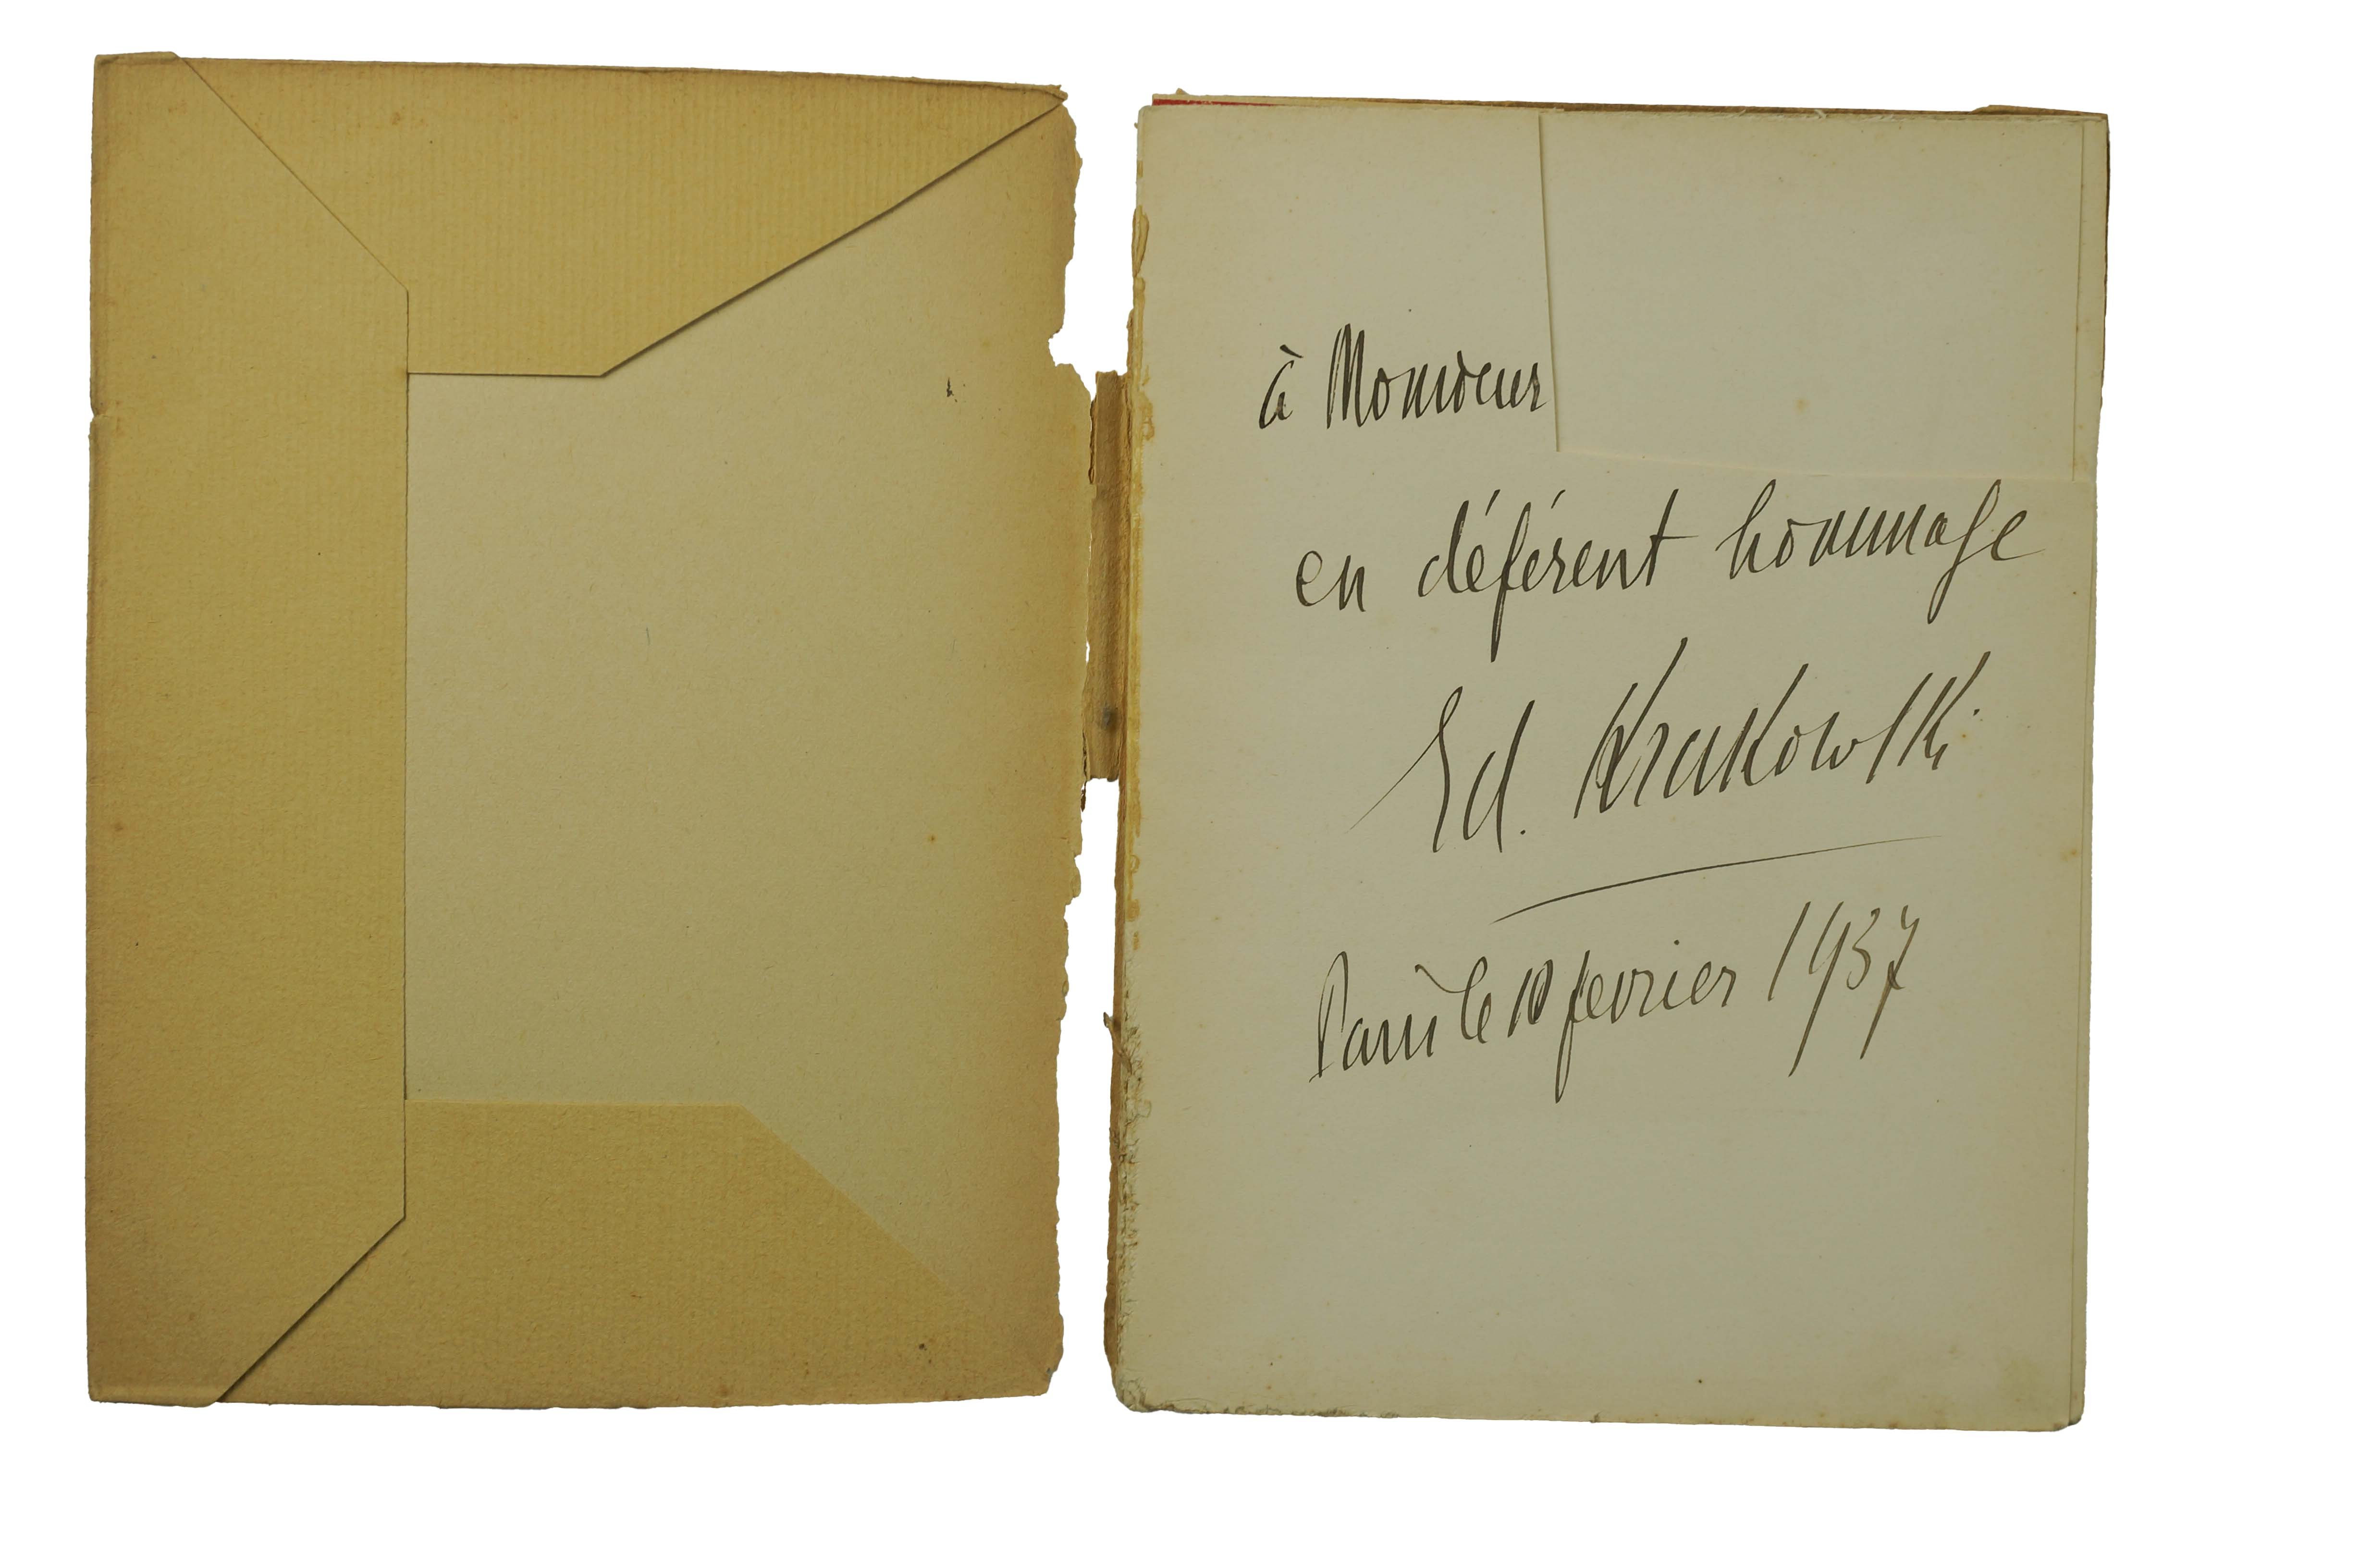 à Monsieur
en déférent hommage
Ed. Krakowski
Paris le 10 fevrier 1937